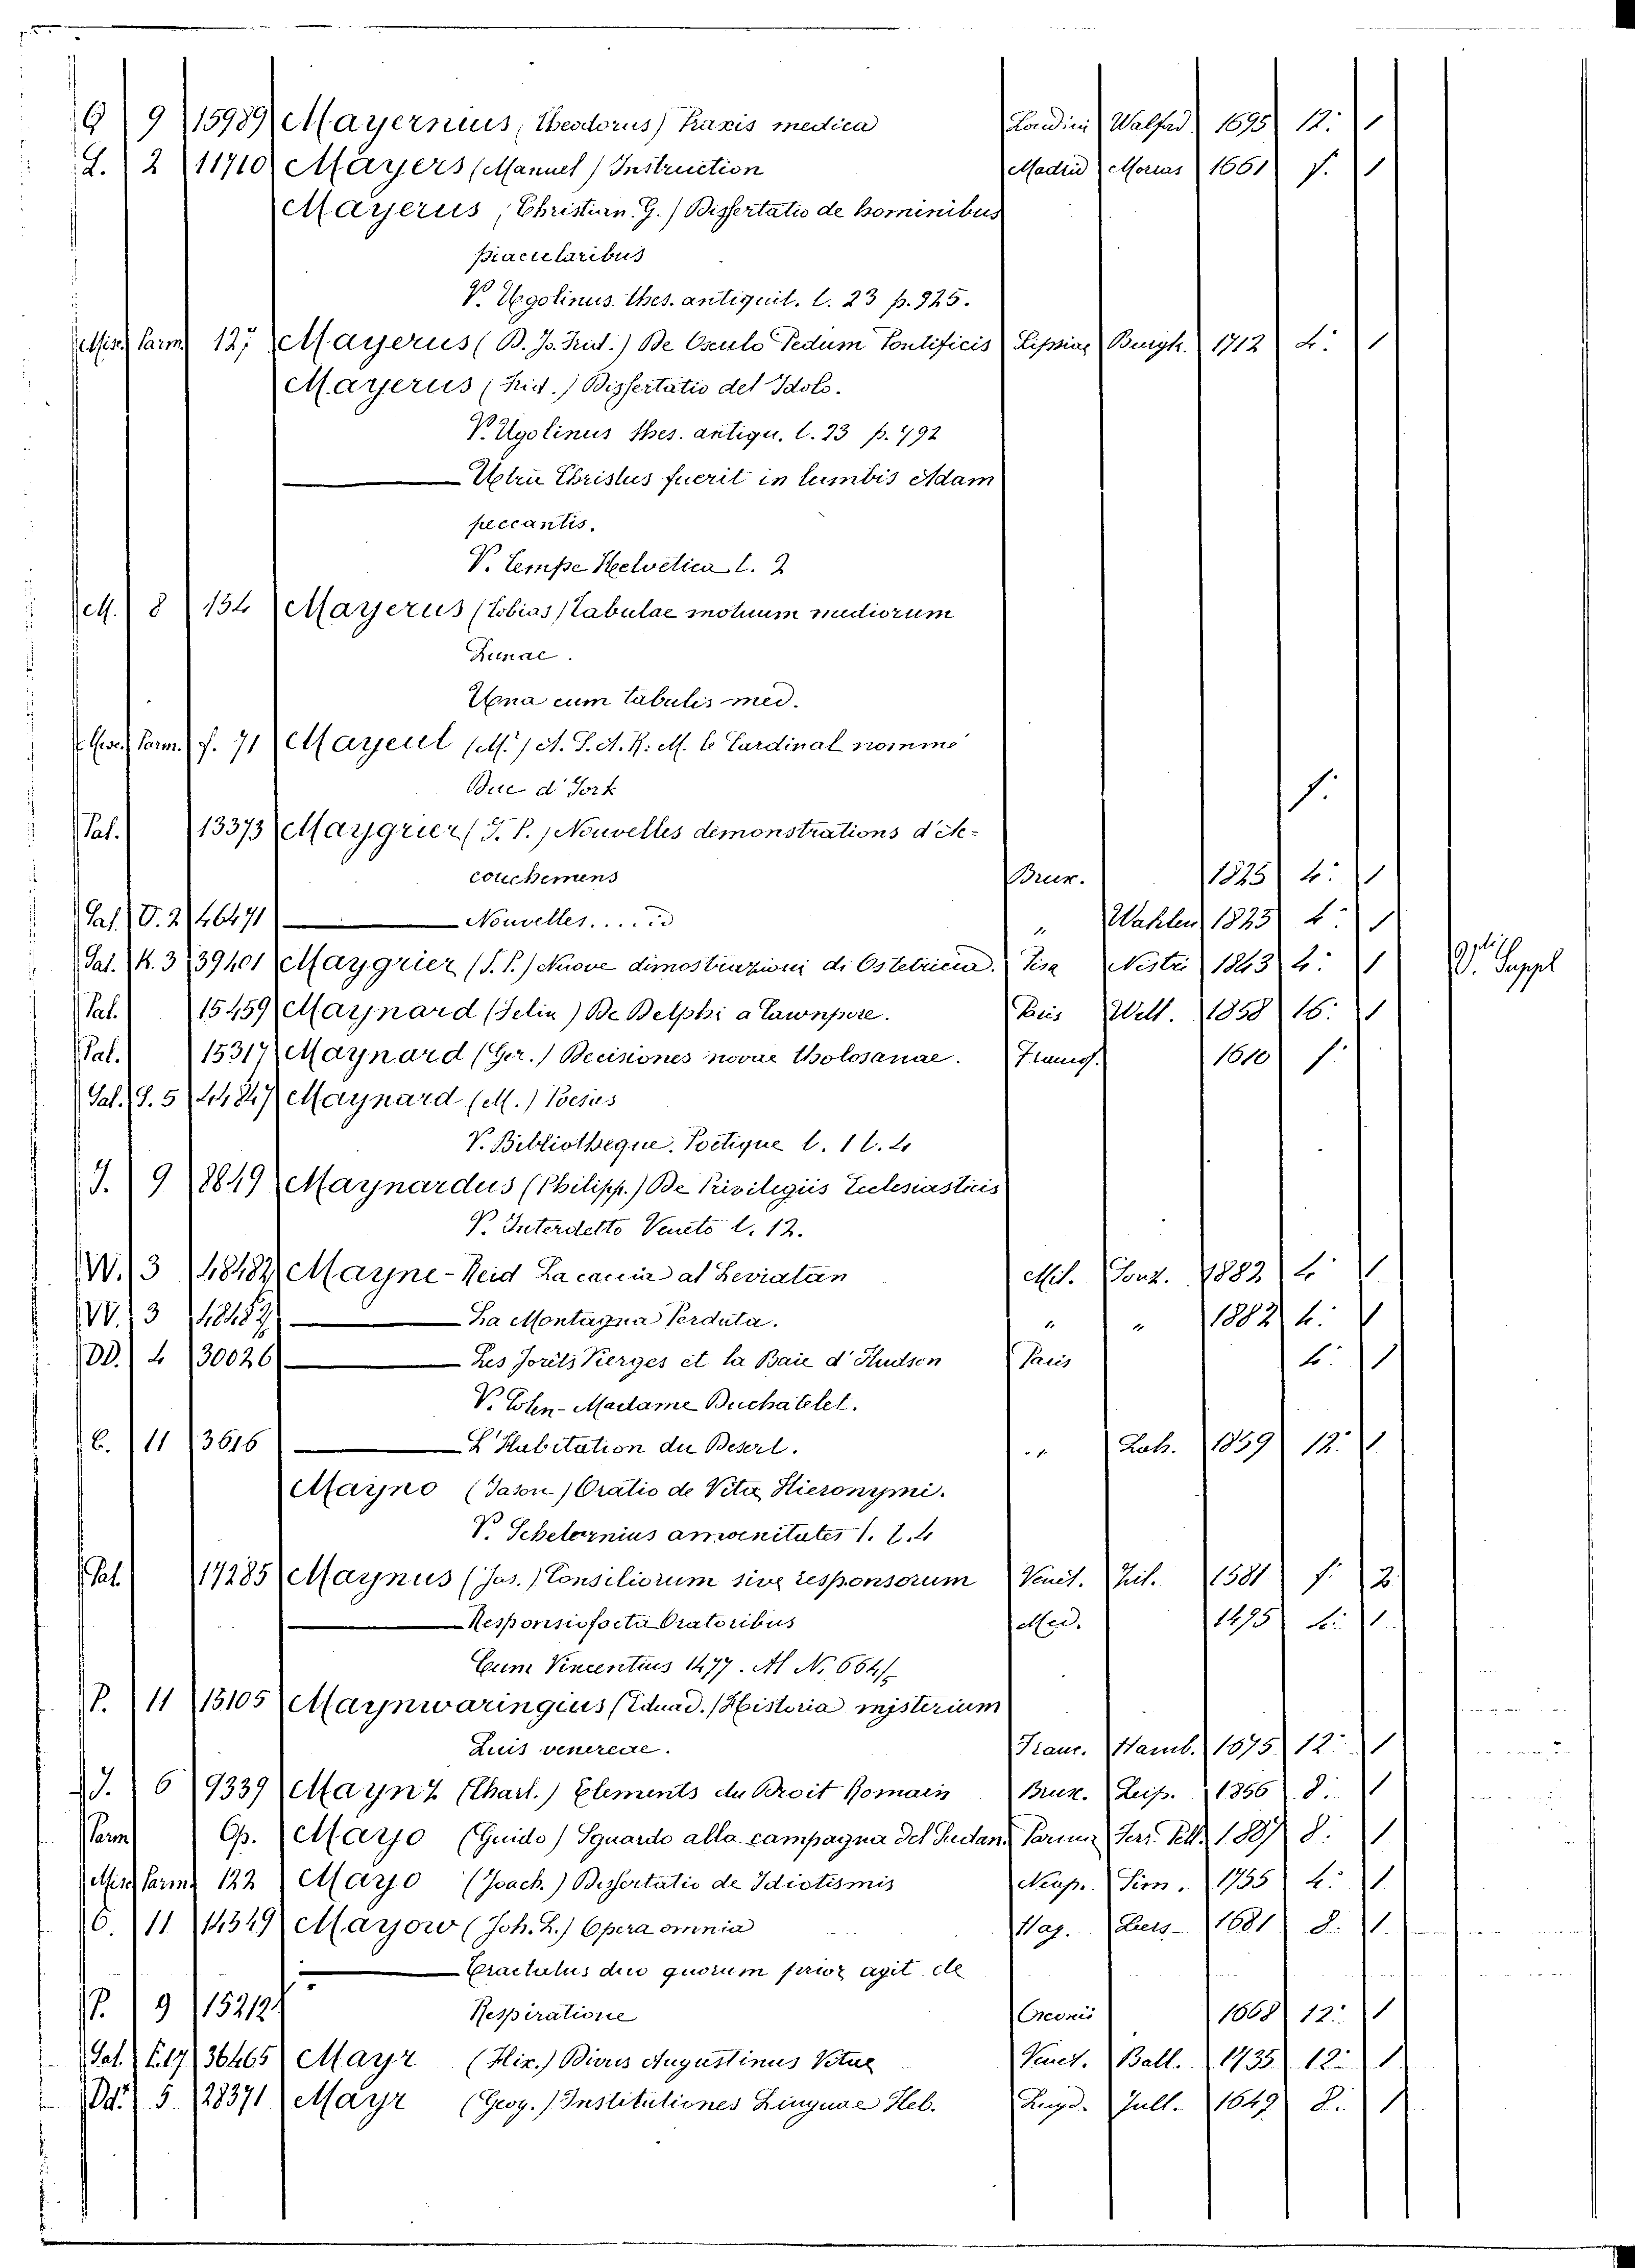 Q 9 15989 Mayernius (Theodorus) Praxis medica Londini Walfad 1695 12: 1
L. 2 11710 Mayers (Manuel) Instruction Madrid Morias 1661 f. 1
Mayerus (Christian. G.) Dissertatio de hominibus
piacularibus
V. Ugolinus thes. antiquit. t. 23 p. 925.
Misc. Parm. 127 Mayerus (B. Jo. Frid.) De Osculo Pedum Pontificis Lipsiae Burgh. 1712 4: 1
Mayerus (Frid.) Dissertatio del Idolo.
V. Ugolinus thes. antiqu. t. 23 p. 792
Utrũ Christus fuerit in lumbis Adam
peccantis.
V. Tempe Helvetica t. 2
M. 8 154 Mayerus (Tobias) Tabulae motuum mediorum
Lunae.
Una cum tabulis med.
Misc. Parm. f. 71 Mayeul (M.) A. S. A. R. M. le Cardinal nommé
Duc d'York f:
Pal. 13373 Maygrier (J. P.) Nouvelles démonstrations d'Ac-
couchemens Brux. 1825 4: 1
Pal. V. 2 46471 Nouvelles..... id " Wahlen 1825 4: 1
Pal. K. 3 39401 Maygrier (J. P.) Nuove dimostrazioni di Ostetricia. Pisa Nistri 1843 4: 1 V. Suppl
Pal. 15459 Maynard (Felix) De Delphi a Cawnpore. Paris 1858 16: 1
Pal. 15317 Maynard (Ger.) Decisiones novae Tholosanae. 1610 f:
Pal. S. 5 44847 Maynard (M.) Poesies
V. Bibliotheque Poetique t. 1 t. 4
J. 9 8849 Maynardus (Philipp.) De Privilegiis Ecclesiasticis
V. Interdetto Veneto t. 12.
W. 3 48482 Mayne-Reid La caccia al Leviatan Mil. Sonz. 1882 4: 1
W. 3 48482 La Montagna Perduta. " " 1882 4: 1
DD. 4 30026 Les Forêts Vierges et la Baie d'Hudson Paris 4: 1
V. Colen-Madame Duchatelet.
C. 11 3616 L'Habitation du Desert. " Lah. 1859 12. 1
Mayno (Jason) Oratio de Vita Hieronymi.
V. Schelornius amoenitates t. 2.4
Pal. 17285 Maynus (Jas.) Consiliorum sive responsorum Venet. Zil. 1581 f: 2
Responsio facta Oratoribus Med. 1495 4: 1
Cum Vincentius 1477. Al N. 664/
P. 11 15105 Maynwaringius (Eduad.) Historia misterium
Luis venereae. Franc. Hamb. 1675 12: 1
J. 6 9339 Maynz (Charl.) Elements du Droit Romain Brux. Leip. 1856 8: 1
Parm Op. Mayo (Guido) Sguardo alla campagna del Sudan Parma Ferr. Pell. 1887 8: 1
Misc. Parm. 122 Mayo (Joach.) Dissertatio de Idiotismis Neap. Sim. 1755 4: 1
O. 11 14549 Mayow (Joh. L.) Opera omnia Hag. Leers 1681 8: 1
Tractatus duo quorum prior agit de
P. 9 15212 Respiratione Oxonii 1668 12: 1
Pal. E.17 36465 Mayr (Hix.) Divus Augustinus Vitae Venet. Ball. 1735 12: 1
Dd. 5 28371 Mayr (Geog.) Institutiones Linguae Heb. Lugd. Jull. 1649 8: 1